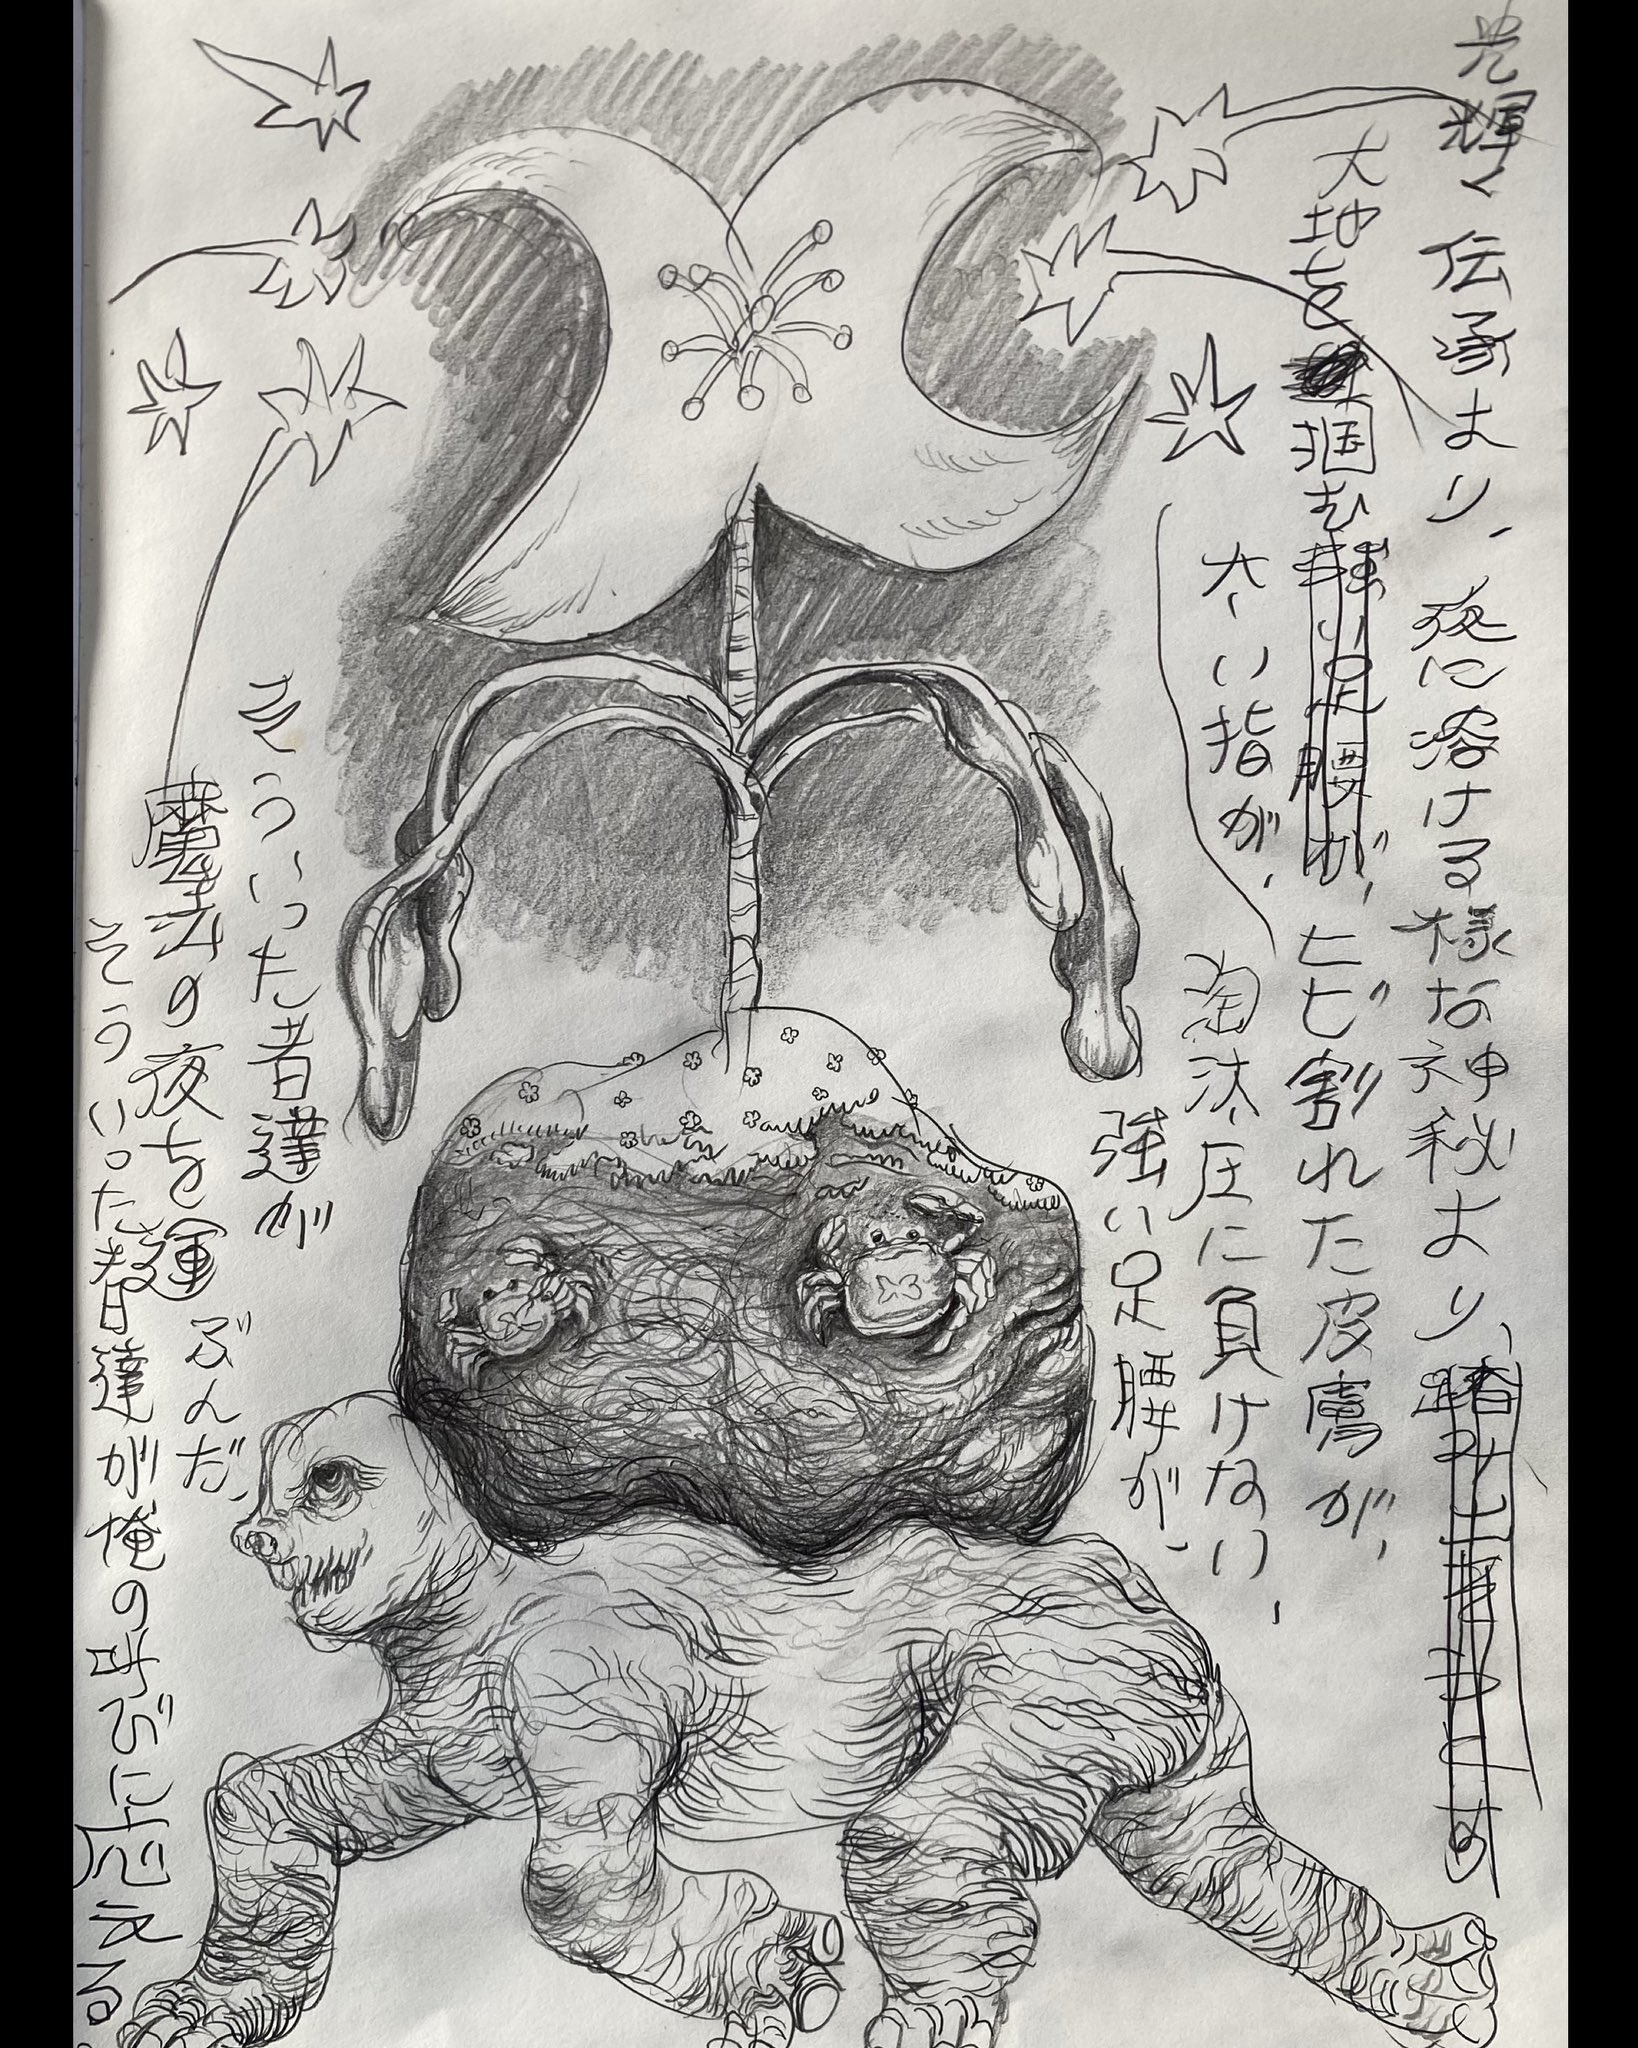 光輝く伝承より、夜に溶ける様な神秘より、
大地を掴む強い足腰が
が、ヒビ割れた皮膚が、
太い指が、
淘汰圧に負けない、
強い足腰が、
そういった者達が
魔法の夜を運ぶんだ、
そういった者達が俺の